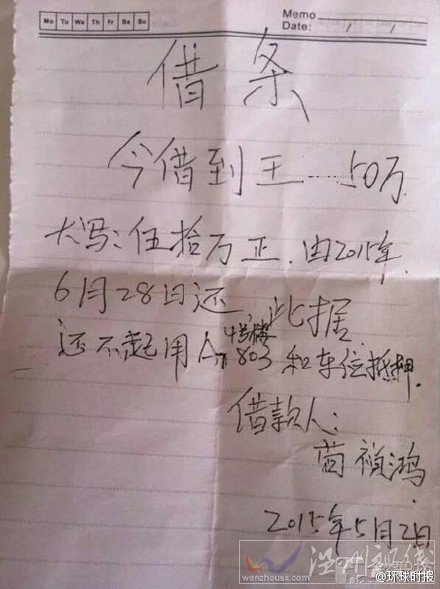 Mo Tu We Th Fr Sa Su
Memo
Date: / /
借条
今借到王 50万
大写:伍拾万正.由2015年.
6月28日还,此据.
4号楼
还不起用A 803和车位抵押.
借款人:
茵祯鸿.
2015年5月2日
温州视线
wenzhousx.com
@环球时报